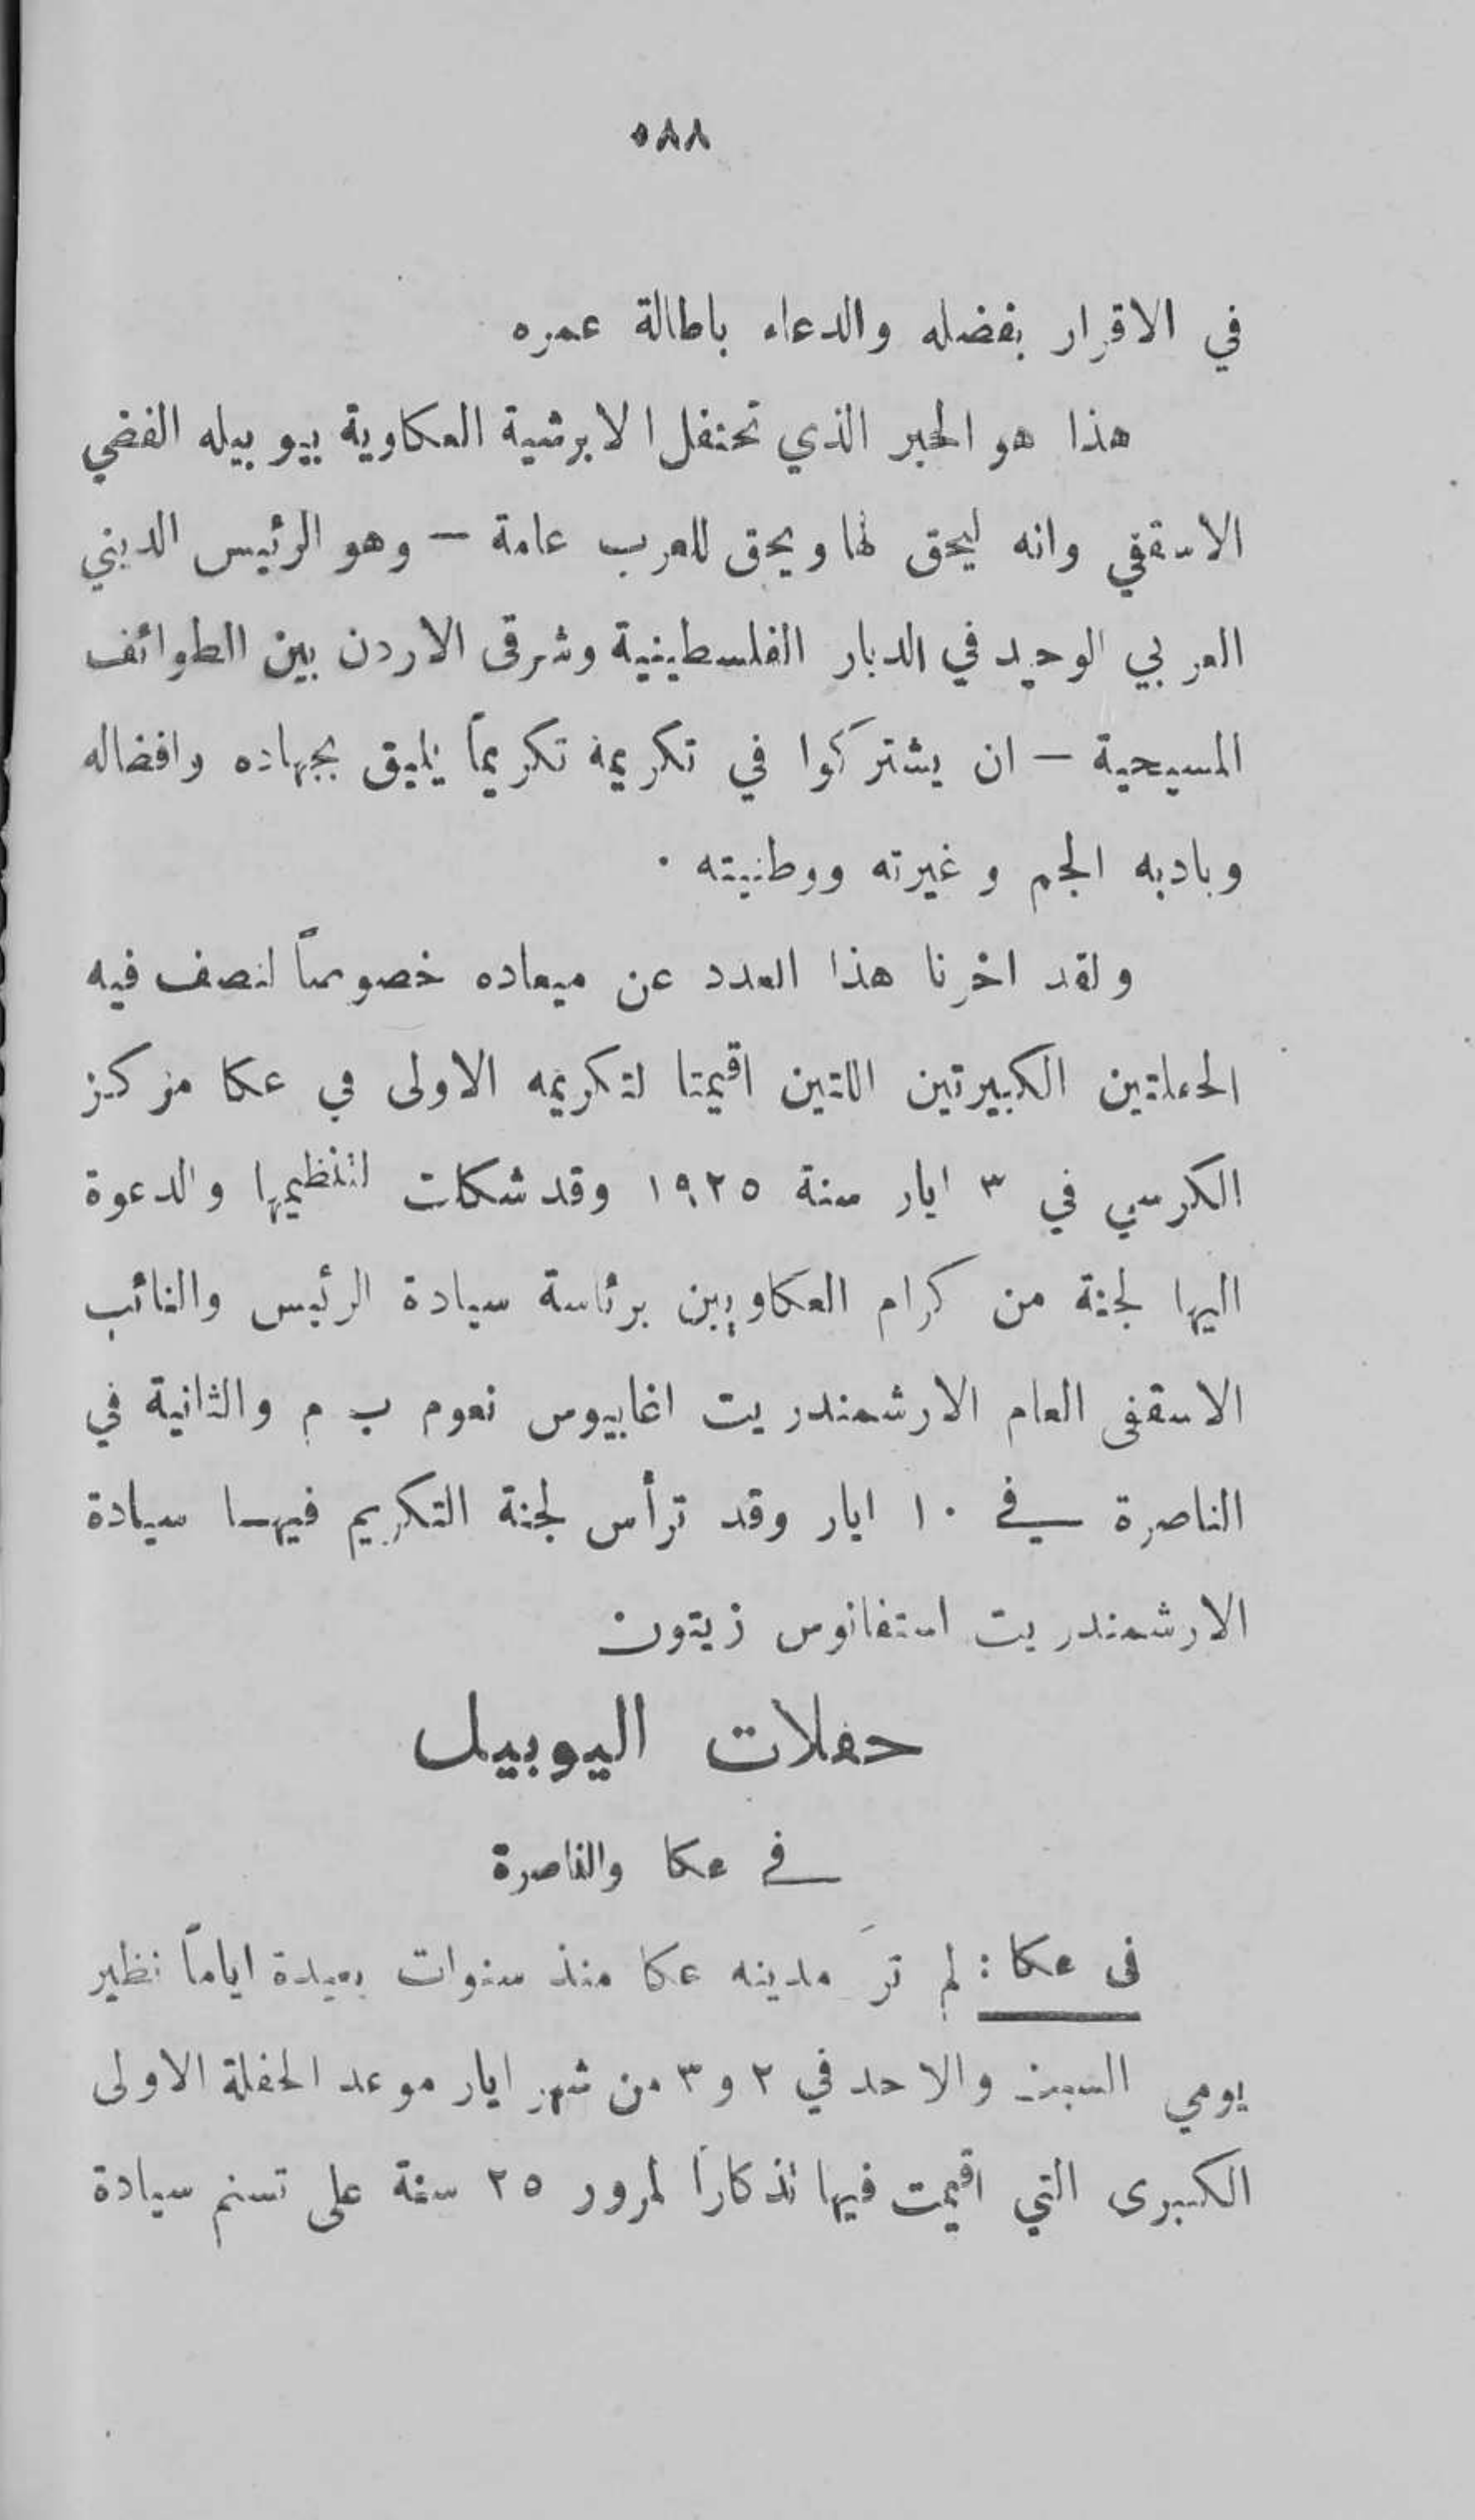 ٥٨٨
في الاقرار بفضله والدعاء باطالة عمره
هذا هو الحبر الذي تحتفل الابرشية العكاوية بيوبيله الفضي
الاسقفي وانه ليحق لها ويحق للعرب عامة – وهو الرئيس الديني
العربي الوحيد في الديار الفلسطينية وشرقى الاردن بين الطوائف
المسيحية – ان يشتركوا في تكريمه تكريماً يليق بجهاده وافضاله
وبادبه الجم وغيرته ووطنيته .
ولقد اخرنا هذا العدد عن ميعاده خصوصاً لنصف فيه
الحفلتين الكبيرتين اللتين اقيمتا لتكريمه الاولى في عكا مركز
الكرسي في ٣ ايار سنة ١٩٢٥ وقد شكلت لتنظيمها والدعوة
اليها لجنة من كرام العكاويين برئاسة سيادة الرئيس والنائب
الاسقفى العام الارشمندريت اغابيوس نعوم ب م والثانية في
الناصرة في ١٠ ايار وقد ترأس لجنة التكريم فيها سيادة
الارشمندريت استفانوس زيتون
حفلات اليوبيل
في عكا والناصرة
فى عكا : لم ترَ مدينه عكا منذ سنوات بعيدة اياماً نظير
يومي السبت والاحد في ٢ و ٣ من شهر ايار موعد الحفلة الاولى
الكبرى التي اقيمت فيها تذكاراً لمرور ٢٥ سنة على تسنم سيادة